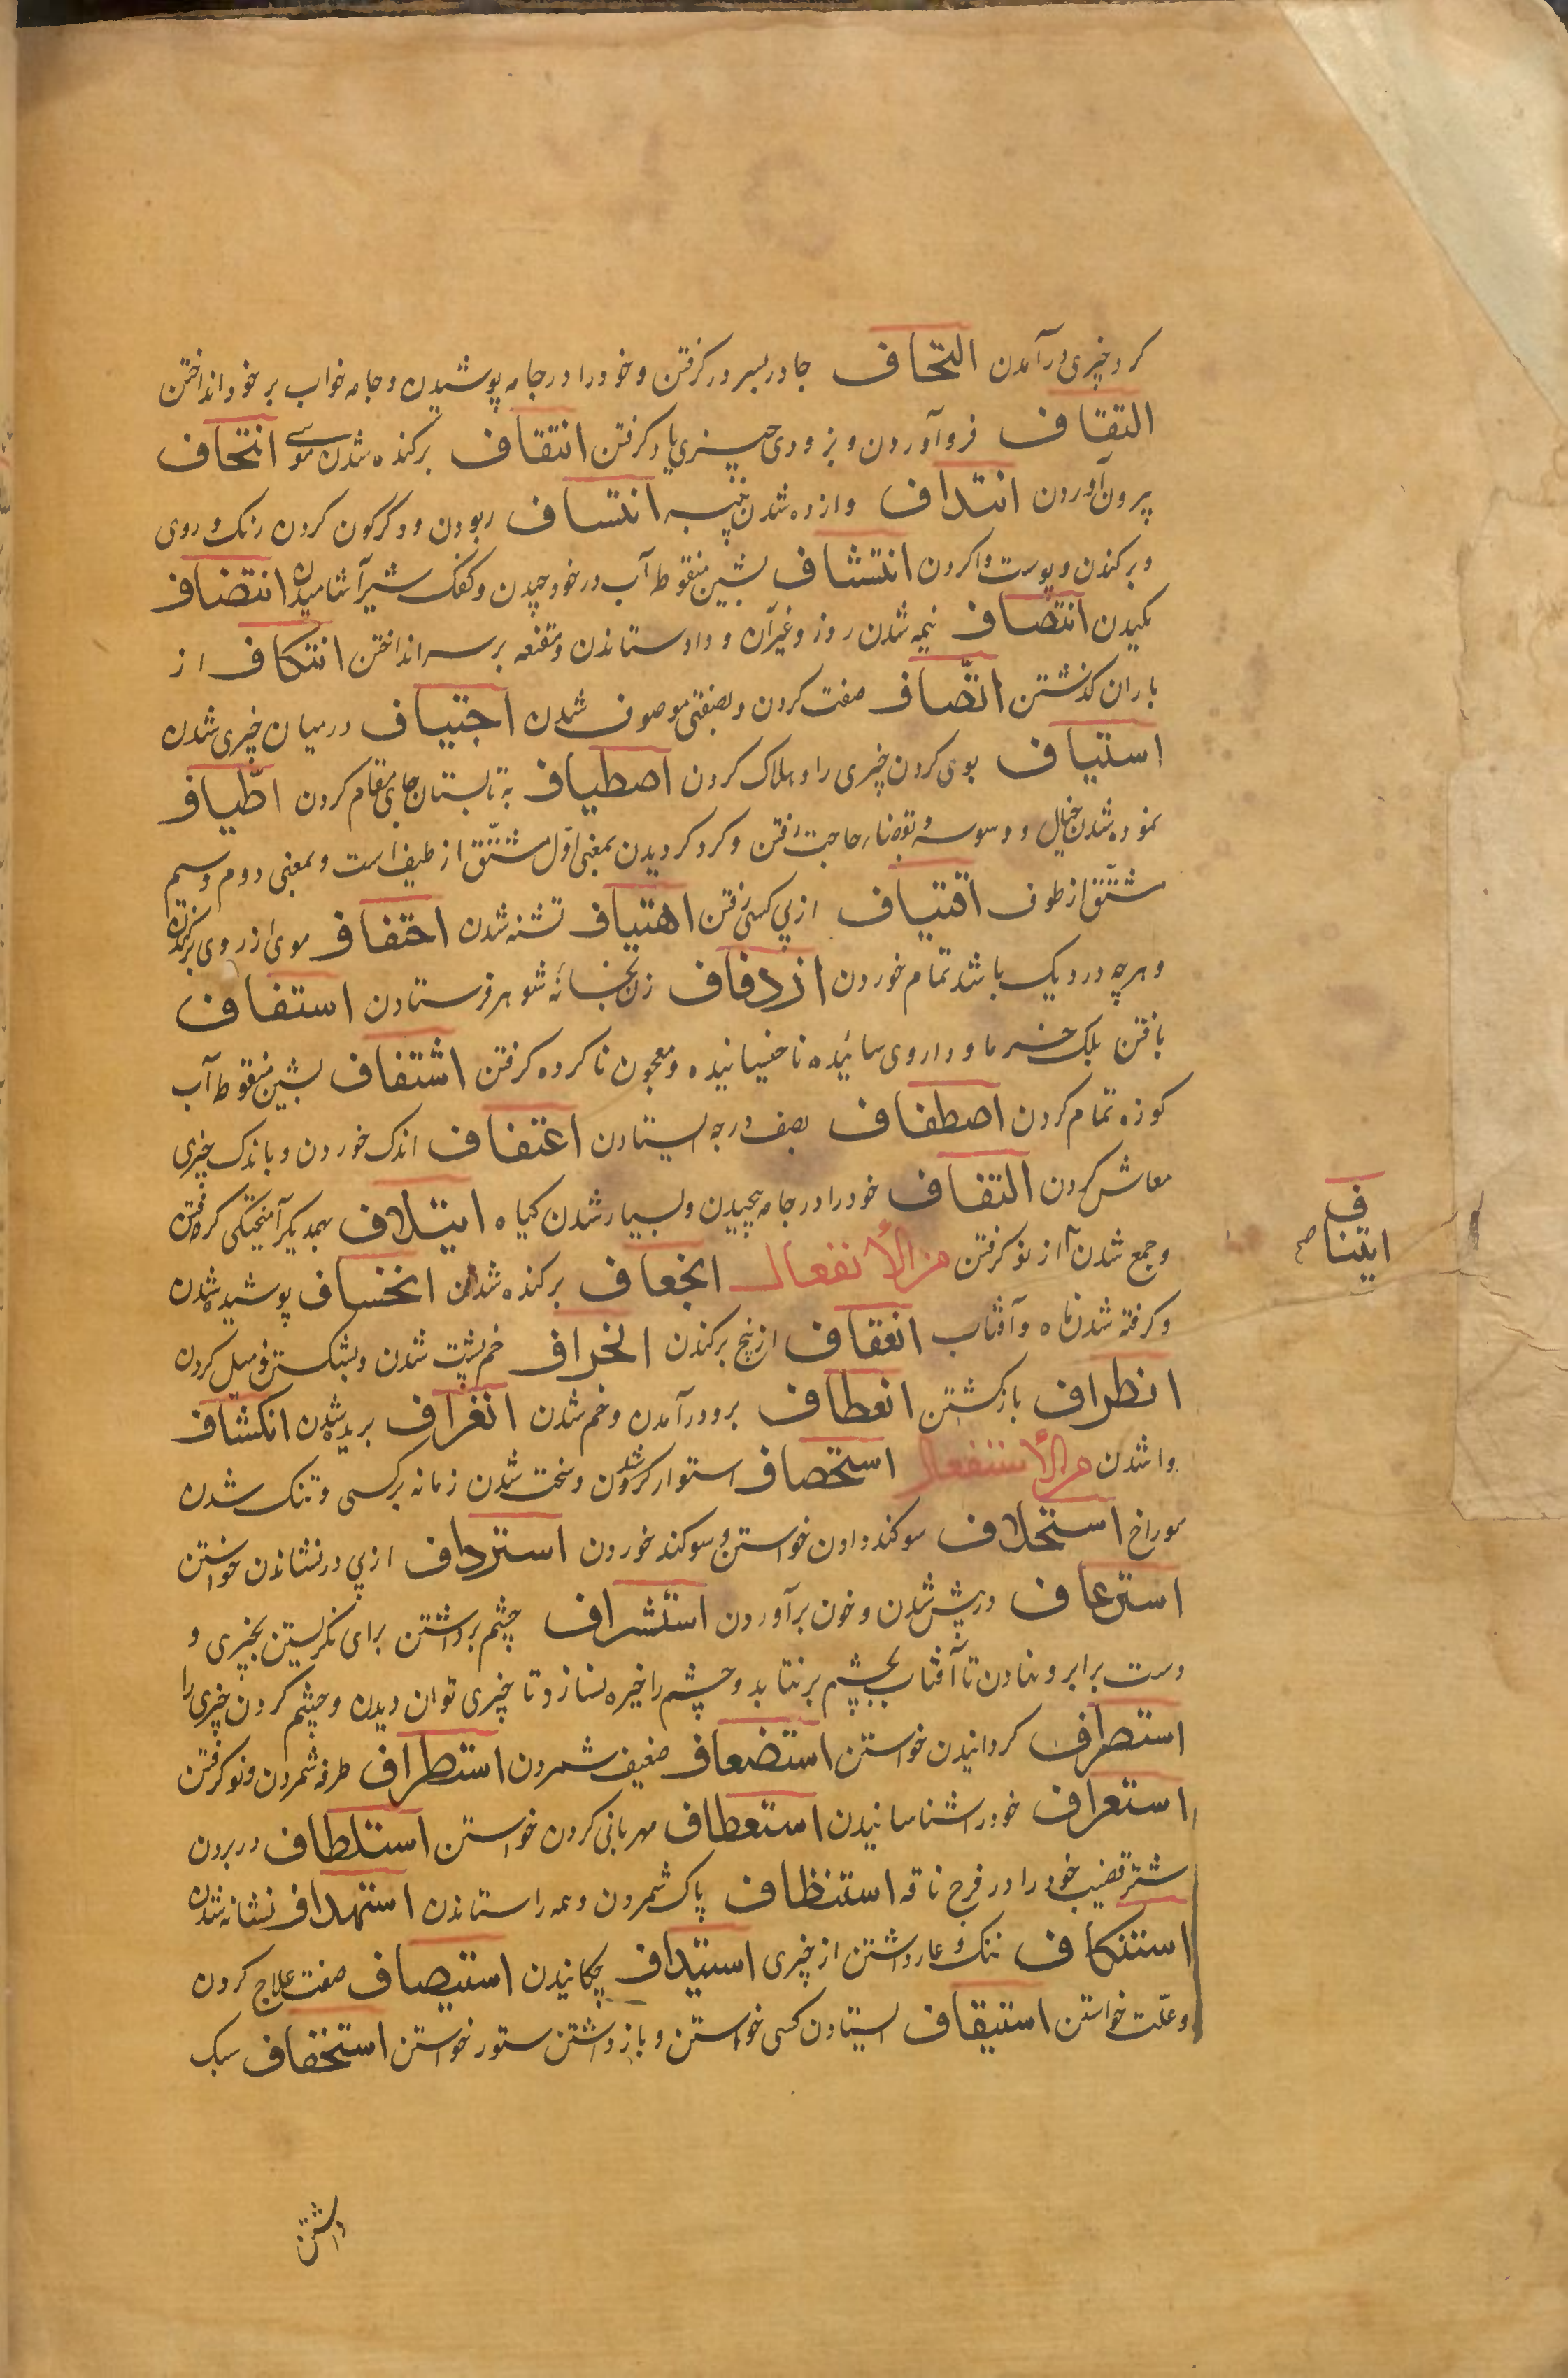 کرد چیزی درآمدن التحاف جادر بسر در کرفتن و خود را در جامه پوشیدن و جامه خواب بر خود انداختن
التقاف فرو آوردن و بزودی چیزی یاد کرفتن انتقاف برکنده شدن موی انتحاف
بیرون آوردن انتداف وازده شدن پنبه انتساف ربودن و دکرکون کردن رنک روی
و برکندن و پوست واکردن انتشاف بشین منقوطه آب در خود چیدن و کفک شیر آشامیدن انتضاف
مکیدن انتصاف نیمه شدن روز و غیر آن و داد ستاندن و مقنعه بر سر انداختن انتکاف از
باران کذشتن اتّصاف صفت کردن و بصفتی موصوف شدن اجتیاف در میان چیزی شدن
استیاف بوی کردن چیزی را و هلاک کردن اصطیاف به تابستان جای مقام کردن اطّیاف
نموده شدن خیال و وسوسه و بقضاء حاجت رفتن و کرد کردیدن بمعنی اوّل مشتّق از طیف است و بمعنی دوم و سیم
مشتّق از طوف اقتیاف از پی کسی رفتن اهتیاف تشنه شدن احتفاف موی از روی برکندن
و هرچه در دیک باشد تمام خوردن ازدفاف زن بخانهٔ شوهر فرستادن استفاف
بافتن بلک خرما و داروی سائیده ناخیسانیده و معجون ناکرده کرفتن اشتفاف بشین منقوطه آب
کوزه تمام کردن اصطفاف بصف و رجه ایستادن اعتفاف اندک خوردن و باندک چیزی
معاش کردن التفاف خود را در جامه پیچیدن و بسیار شدن کیاه ایتلاف بهمدیکر آمیختکی کرفتن
و جمع شدن از نو کرفتن من الأنفعال انجعاف برکنده شدن انخساف پوشیده شدن
و کرفته شدن ماه و آفتاب انعقاف از بیخ برکندن انحراف خم پشت شدن و بشکستن و میل کردن
انطراف بازکشتن انعطاف برو درآمدن و خم شدن انغراف بریده شدن انکشاف
واشدن من الأستفعال استحصاف استوار کردن شدن و سخت شدن زمانه برکسی و تنک شدن
سوراخ استحلاف سوکند دادن خواستن و سوکند خوردن استرداف از پی درنشاندن خواستن
استرعاف در پیش شدن و خون برآوردن استشراف چشم برداشتن برای نکریستن بچیزی و
دست برابرو نهادن تا آفتاب بچشم برنتابد و چشم را خیره نسازد تا چیزی توان دیدن و چشم کردن چیزی را
استصراف کردانیدن خواستن استضعاف ضعیف شمردن استطراف طرفه شمردن و نو کرفتن
استعراف خود را شناسانیدن استعطاف مهربانی کردن خواستن استلطاف در بردن
شتر قضیب خود را در فرج ناقه استنظاف پاک شمردن و همه را ستاندن استهداف نشانه شدن
استنکاف ننک و عار داشتن از چیزی استیداف چکانیدن استیصاف صفت علاج کردن
و علّت خواستن استیقاف ایستادن کسی خواستن و بازداشتن ستور خواستن استخفاف سبک
داشتن
ف
ایتنا صح